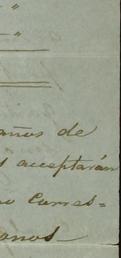 "
"
años de
aceptarán
Corres=
anos